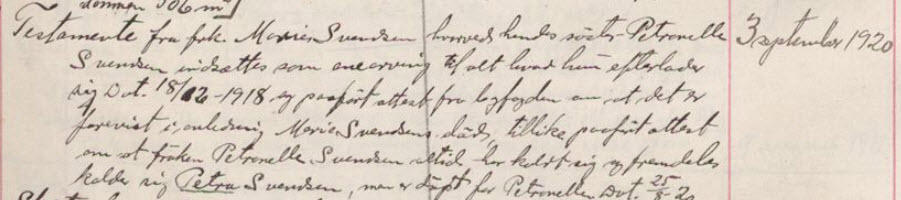 dommen 506 m²]
Testamente fra frk. Marie Svendsen hvorved hendes søster Petronelle 3 september 1920
Svendsen indsættes som enearving til alt hvad hun efterlader
sig Dat. 18/12-1918 og paaført attest fra byfogden om at det er
forevist i anledning Marie Svendsens død, tillike paaført attest
om at frøken Petronelle Svendsen altid har kaldt sig og fremdeles
kalder sig Petra Svendsen, men er døpt for Petronelle. Dat. 25/8-20